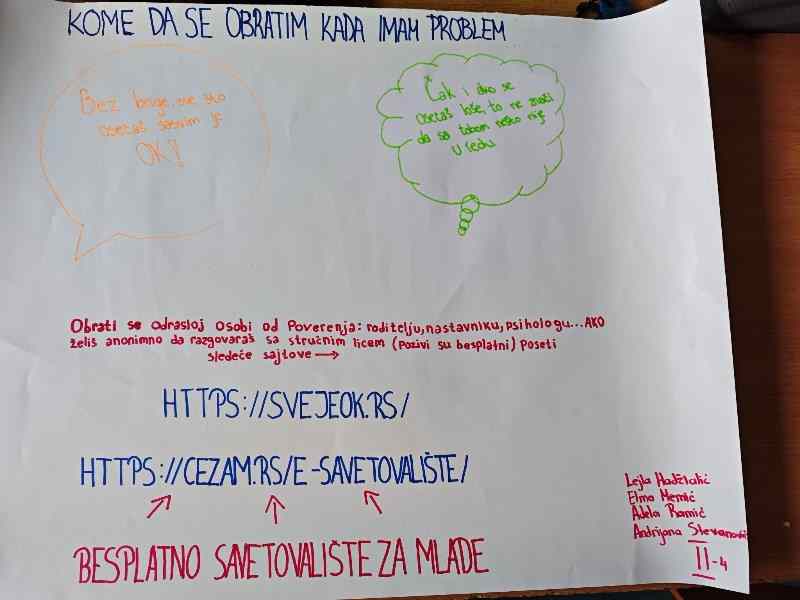 KOME DA SE OBRATIM KADA IMAM PROBLEM
Bez brige, sve što
osećaš sasvim je
OK!
Čak i ako se
osećaš loše, to ne znači
da sa tobom nešto nije
u redu
Obrati se odrasloj osobi od poverenja: roditelju, nastavniku, psihologu... AKO
želiš anonimno da razgovaraš sa stručnim licem (Pozivi su besplatni) Poseti
sledeće sajtove →
HTTPS://SVEJEOK.RS/
HTTPS://CEZAM.RS/E-SAVETOVALIŠTE/
BESPLATNO SAVETOVALIŠTE ZA MLADE
Lejla
Elma Memić
Adela Ramić
Andrijana Stevanović
II-4